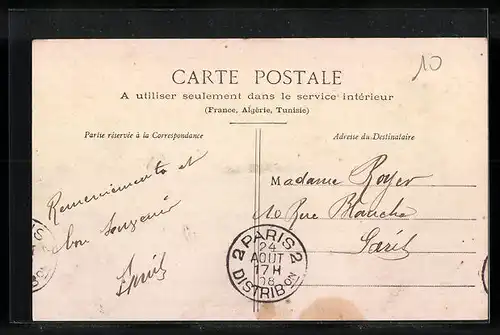 10
CARTE POSTALE
A utiliser seulement dans le service intérieur
(France, Algérie, Tunisie)
Partie réservée à la Correspondance
Adresse du Destinataire
Remerciements et
bon souvenir
Madame Royer
10 Rue Blanche
Paris
2 PARIS 2
24
AOUT
17 H
08
DISTRIB ON